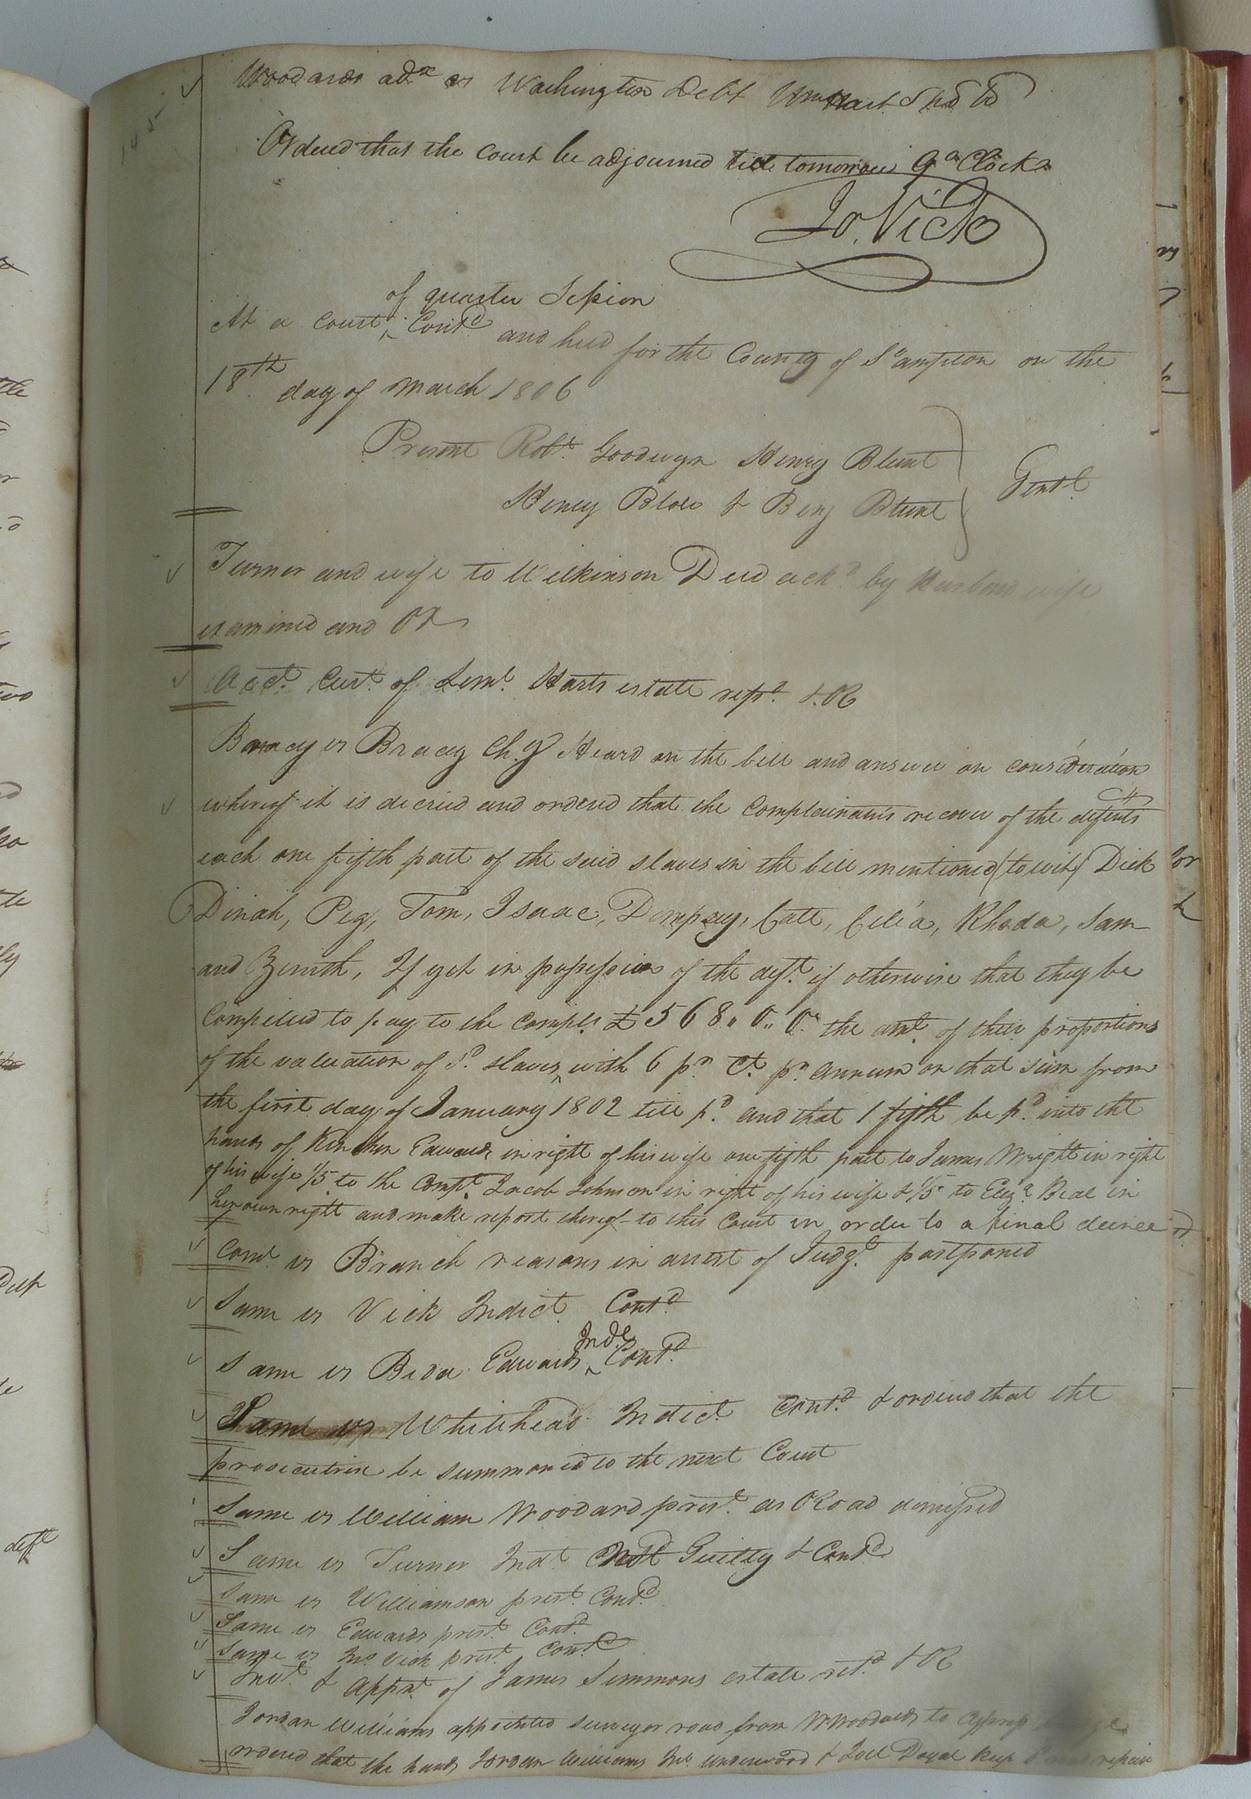 Woodards adx vs Washington Debt Wm Hart S H B
Ordered that the Court be adjourned till tomorrow 9 oClock
Jo. Vick
of quarter Session
At a Court Contd and held for the County of S'ampton on the
18th day of March 1806
Present Robt. Goodwyn Henry Blunt
Henry Blow & Benj Blunt Gentl
Turner and wife to Wilkinson Deed ackd by Husband wife
examined and OR
Acct. Curt. of Leml. Harts estate retd. & OR
Bracey vs Bracey Ch.y Heard on the bill and answer on consideration
whereof it is decreed and ordered that the Complainants recover of the defents
each one fifth part of the said slaves in the bill mentioned (to wit) Dick
Dinah, Peg, Tom, Isaac, Dempsey, Catt, Celia, Rhoda, Sam
and Zenith, If yet in possession of the deft. if otherwise that they be
Compelled to pay to the Complts £568.. 0.. 0. the amt. of their proportions
of the valuation of sd. slaves with 6 pr Ct. pr annum on that sum from
the first day of January 1802 till pd. and that 1 fifth be pd. into the
hands of Kinchin Edwards in right of his wife one fifth part to James Wright in right
of his wife 1/5 to the Compt. Jacob Johnson in right of his wife & 1/5 to Eliza. Beal in
her own right and make report thereof to this Court in order to a final decree
Comt vs Branch reasons in arrest of Judgt. postponed
Same vs Vick Indict. Contd
Same vs Edwards Indt Contd.
Same vs Whitehead Indict. Contd. & ordered that the
prosecutrix be summoned to the next Court
Same vs William Woodard prest. as O Road dismissed
Same vs Turner Indt. Not Guilty & Contd
Same vs Williamson prest. Contd
Same vs Edwards prest. Contd
Same vs Jno Vick prest. Contd
Invt. & Appmt. of James Simmons estate retd & OR
Jordan Williams appointed surveyor road from Woodards to
ordered that the hands Jordan Williams Underwood & Joel Doyal keep repair